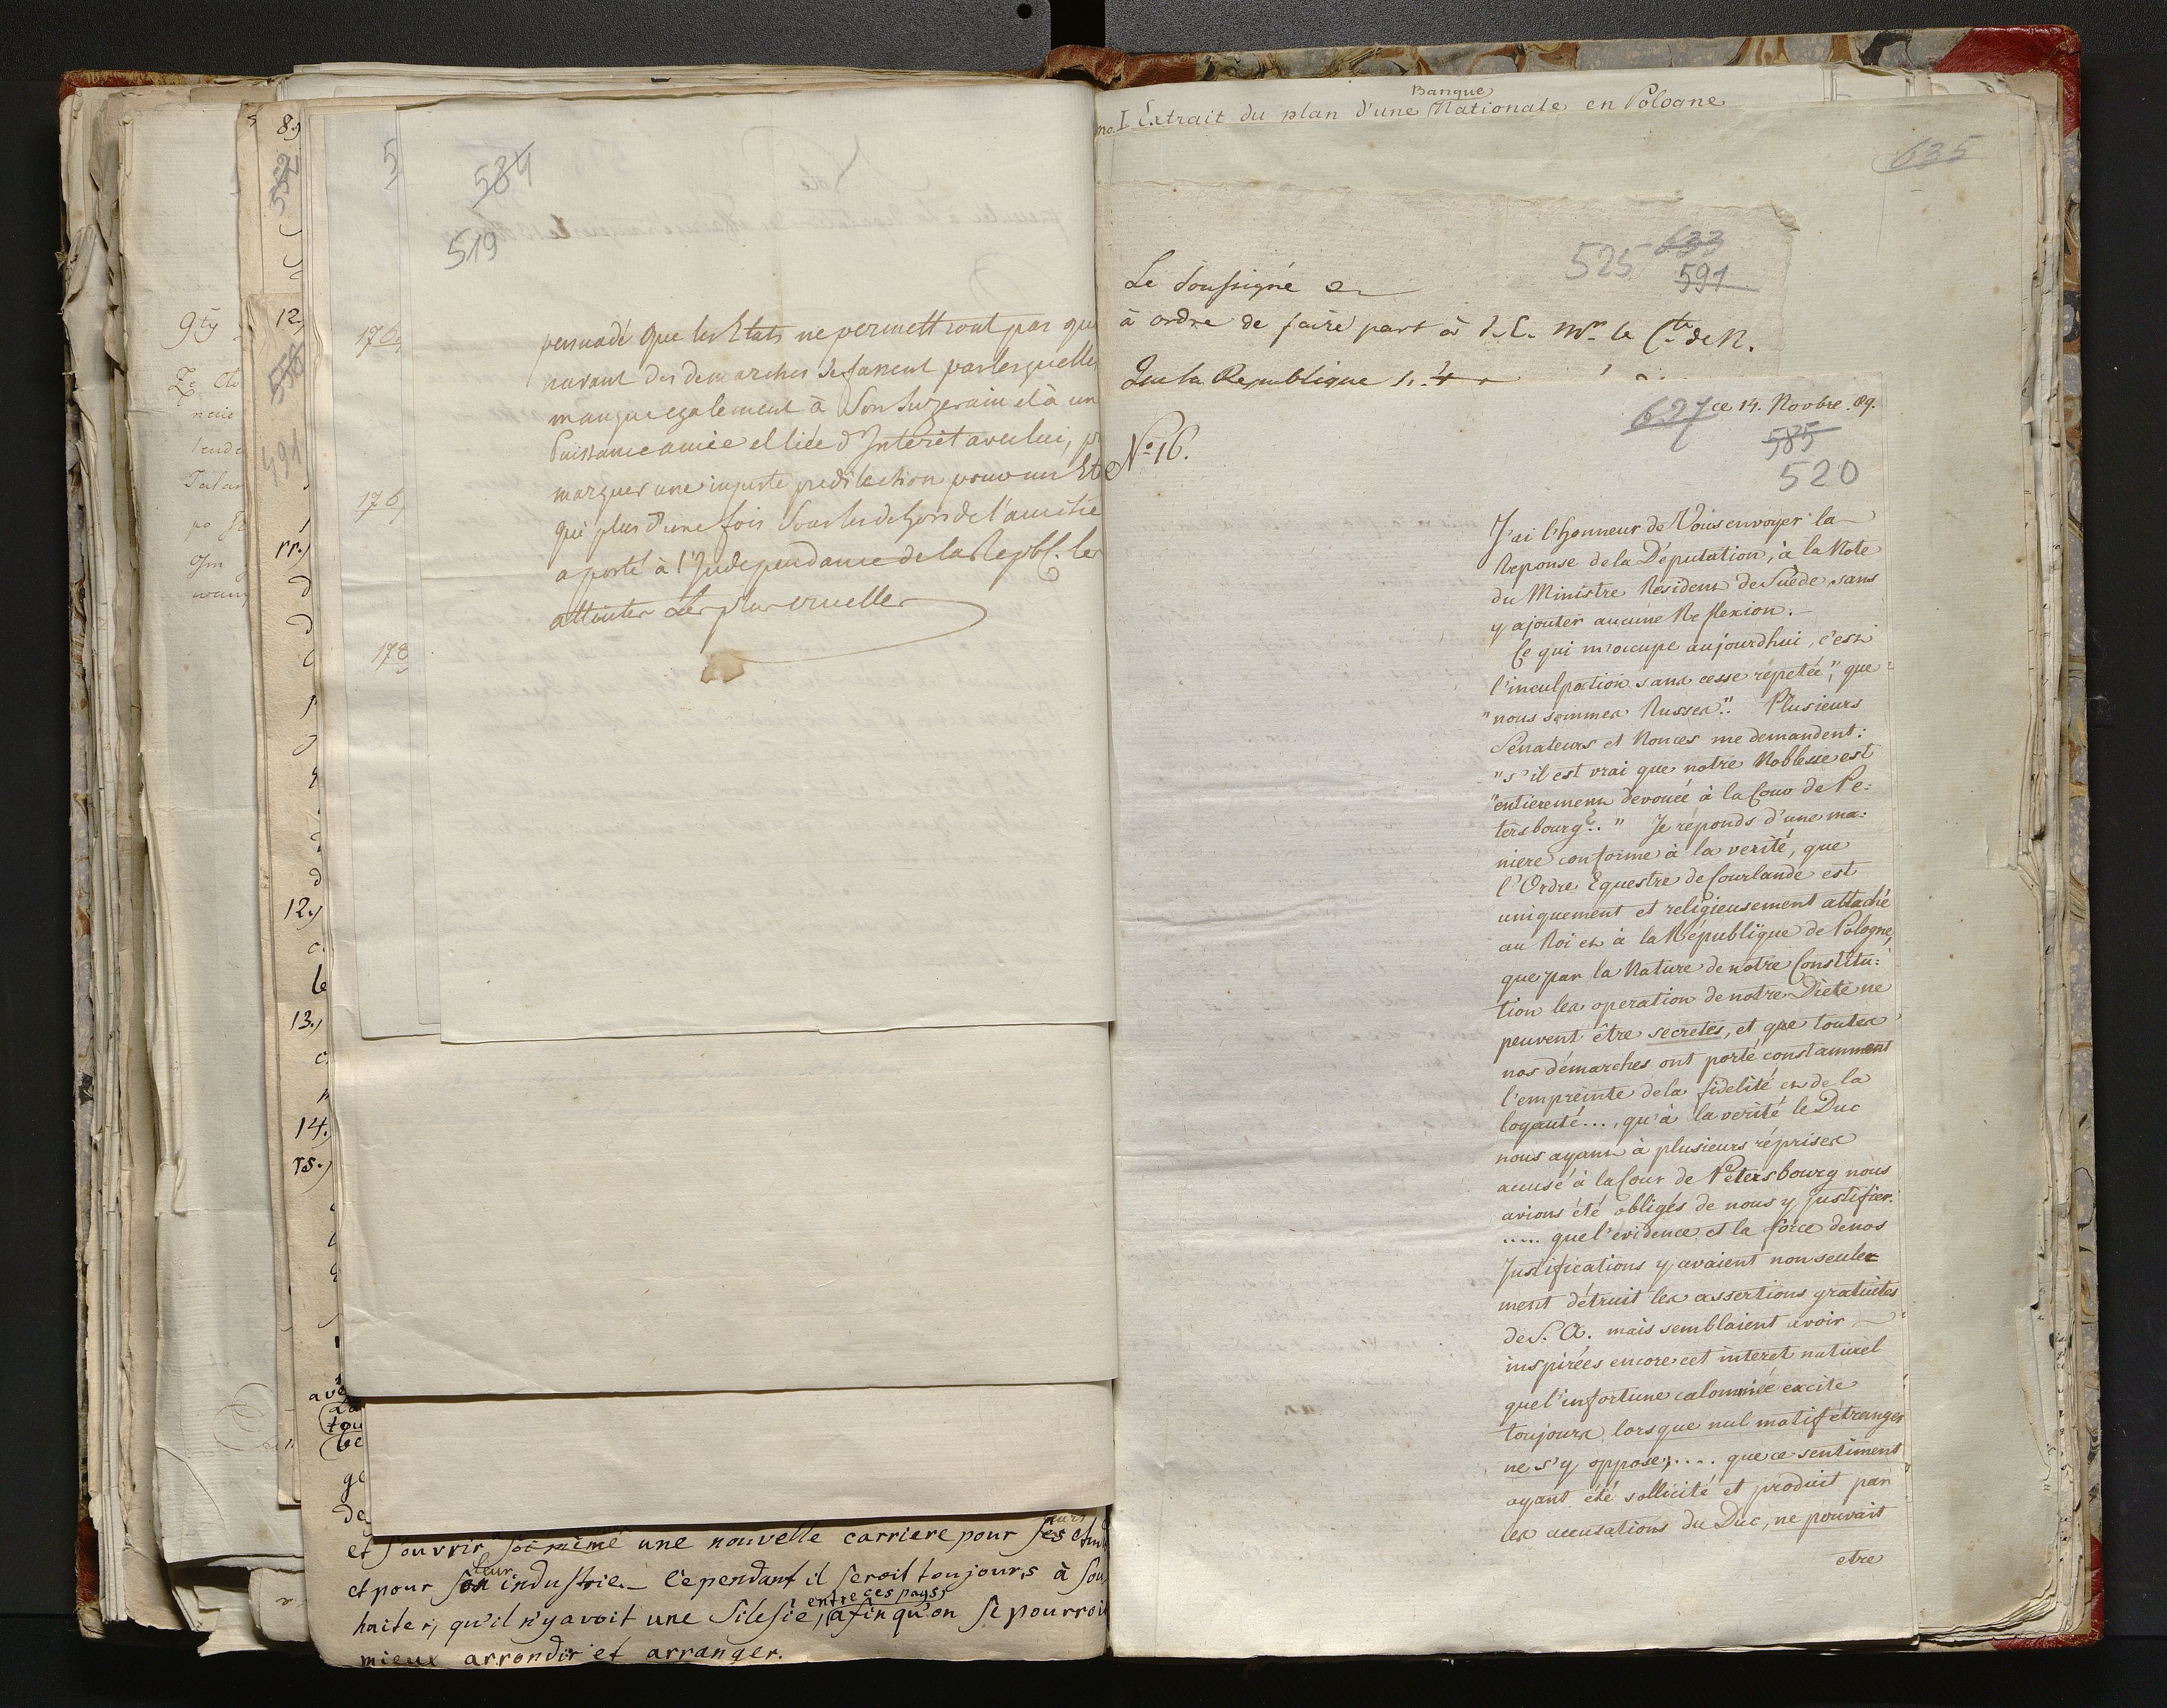 8.)
552
12.)
558
491
9ty
rr.)
12.)
13.)
14.)
rs.)
5
584
519
176,
176,
178,
persuadé que les Etats ne permettront pas que
navant des demarches se fassent par lesquelles
manque egalement à Son Suzerain et à un
Puissance amie et liée d'Interêt avec lui, p
marquer une injuste predilection pour un Et
qui plus d'une fois sous les dehors de l'amitie
a porté à l'Independance de la Repbl. les
atteintes les plus cruelles
et s'ouvrir soi même une nouvelle carriere pour ses
leur
et pour son industrie. – Cependant il seroit toujours à sou
entre ces pays
haiter, qu'il n'y avoit une Silesie, afin qu'on se pourroit
mieux arrondir et arranger.
Banque
no. I Extrait du plan d'une Nationale en Pologne
635
525 633
591
Le Soussigné
à ordre de faire part à S.E. Mr. le Cte de N.
Que la Republique
627 ce 14. Novbre. 89.
585
520
No. 16.
J'ai l'honneur de Vous envoyer la
Reponse de la Députation, à la Note
du Ministre Resident de Suède sans
y ajouter aucune Reflexion. –
Ce qui m'occupe aujourdhui, c'est
l'inculpation sans cesse répetée, "que
"nous sommes Russes". Plusieurs
Senateurs et Nonces me demandent:
"s'il est vrai que notre Noblesse est
"entierement devouée à la Cour de Pe:
tersbourg?.." Je réponds d'une ma:
niere conforme à la verité, que
l'Ordre Equestre de Courlande est
uniquement et religieusement attaché
au Roi et à la République de Pologne,
que par la Nature de notre Constitu:
tion les operation de notre Diete ne
peuvent être secretes, et que toutes
nos démarches ont porté constamment
l'empreinte de la fidelité et de la
loyauté..., qu'à la verité le Duc
nous ayant à plusieurs réprises
accusé à la Cour de Petersbourg nous
avions été obligés de nous y justifier.
..... que l'évidence et la force de nos
Justifications y avaient non seule=
ment détruit les assertions gratuites
de S. A. mais semblaient avoir
inspirées encore cet intèret naturel
que l'infortune calomniée excite
toujours, lorsque nul motif étranger
ne s'y oppose;.... que ce sentiment
ayant été sollicité et produit par
les accusations du Duc, ne pouvait
etre